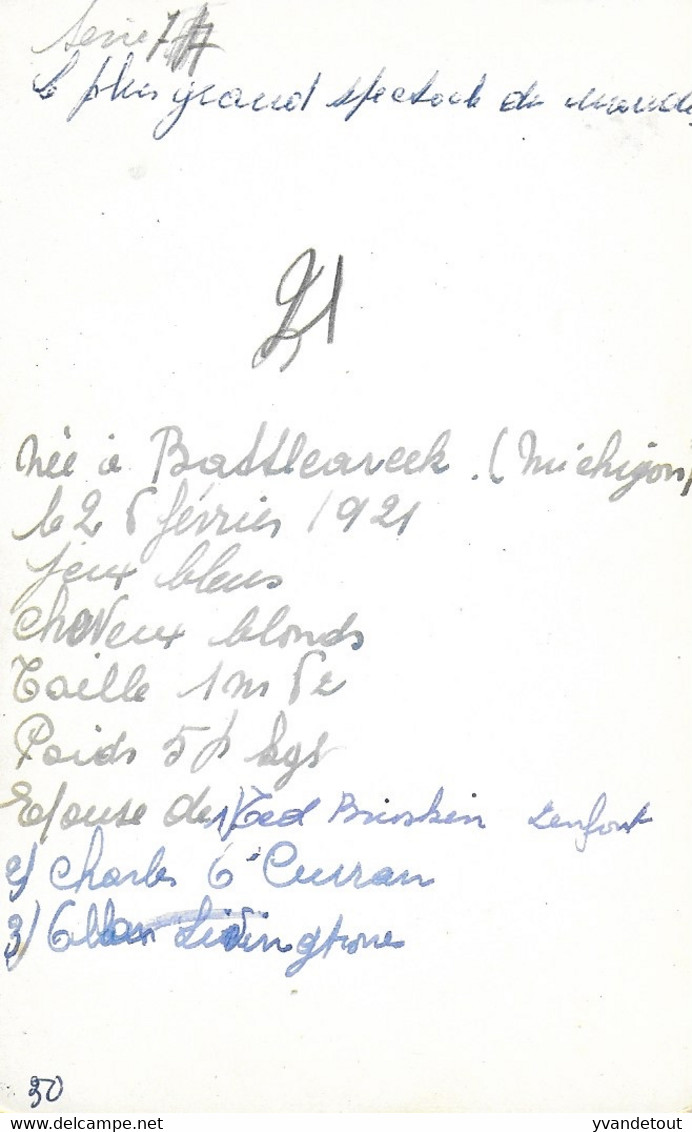 Serie 77
le plus grand spectacle du monde
21
née à Battlecreek. (Michigan)
le 26 février 1921
yeux bleus
cheveux blonds
Taille 1m62
Poids 5 kgs
Epouse de 1/ Ted Briskin 2 enfant
2/ Charles O'Curran
3/ Livingtone
50
yvandetout